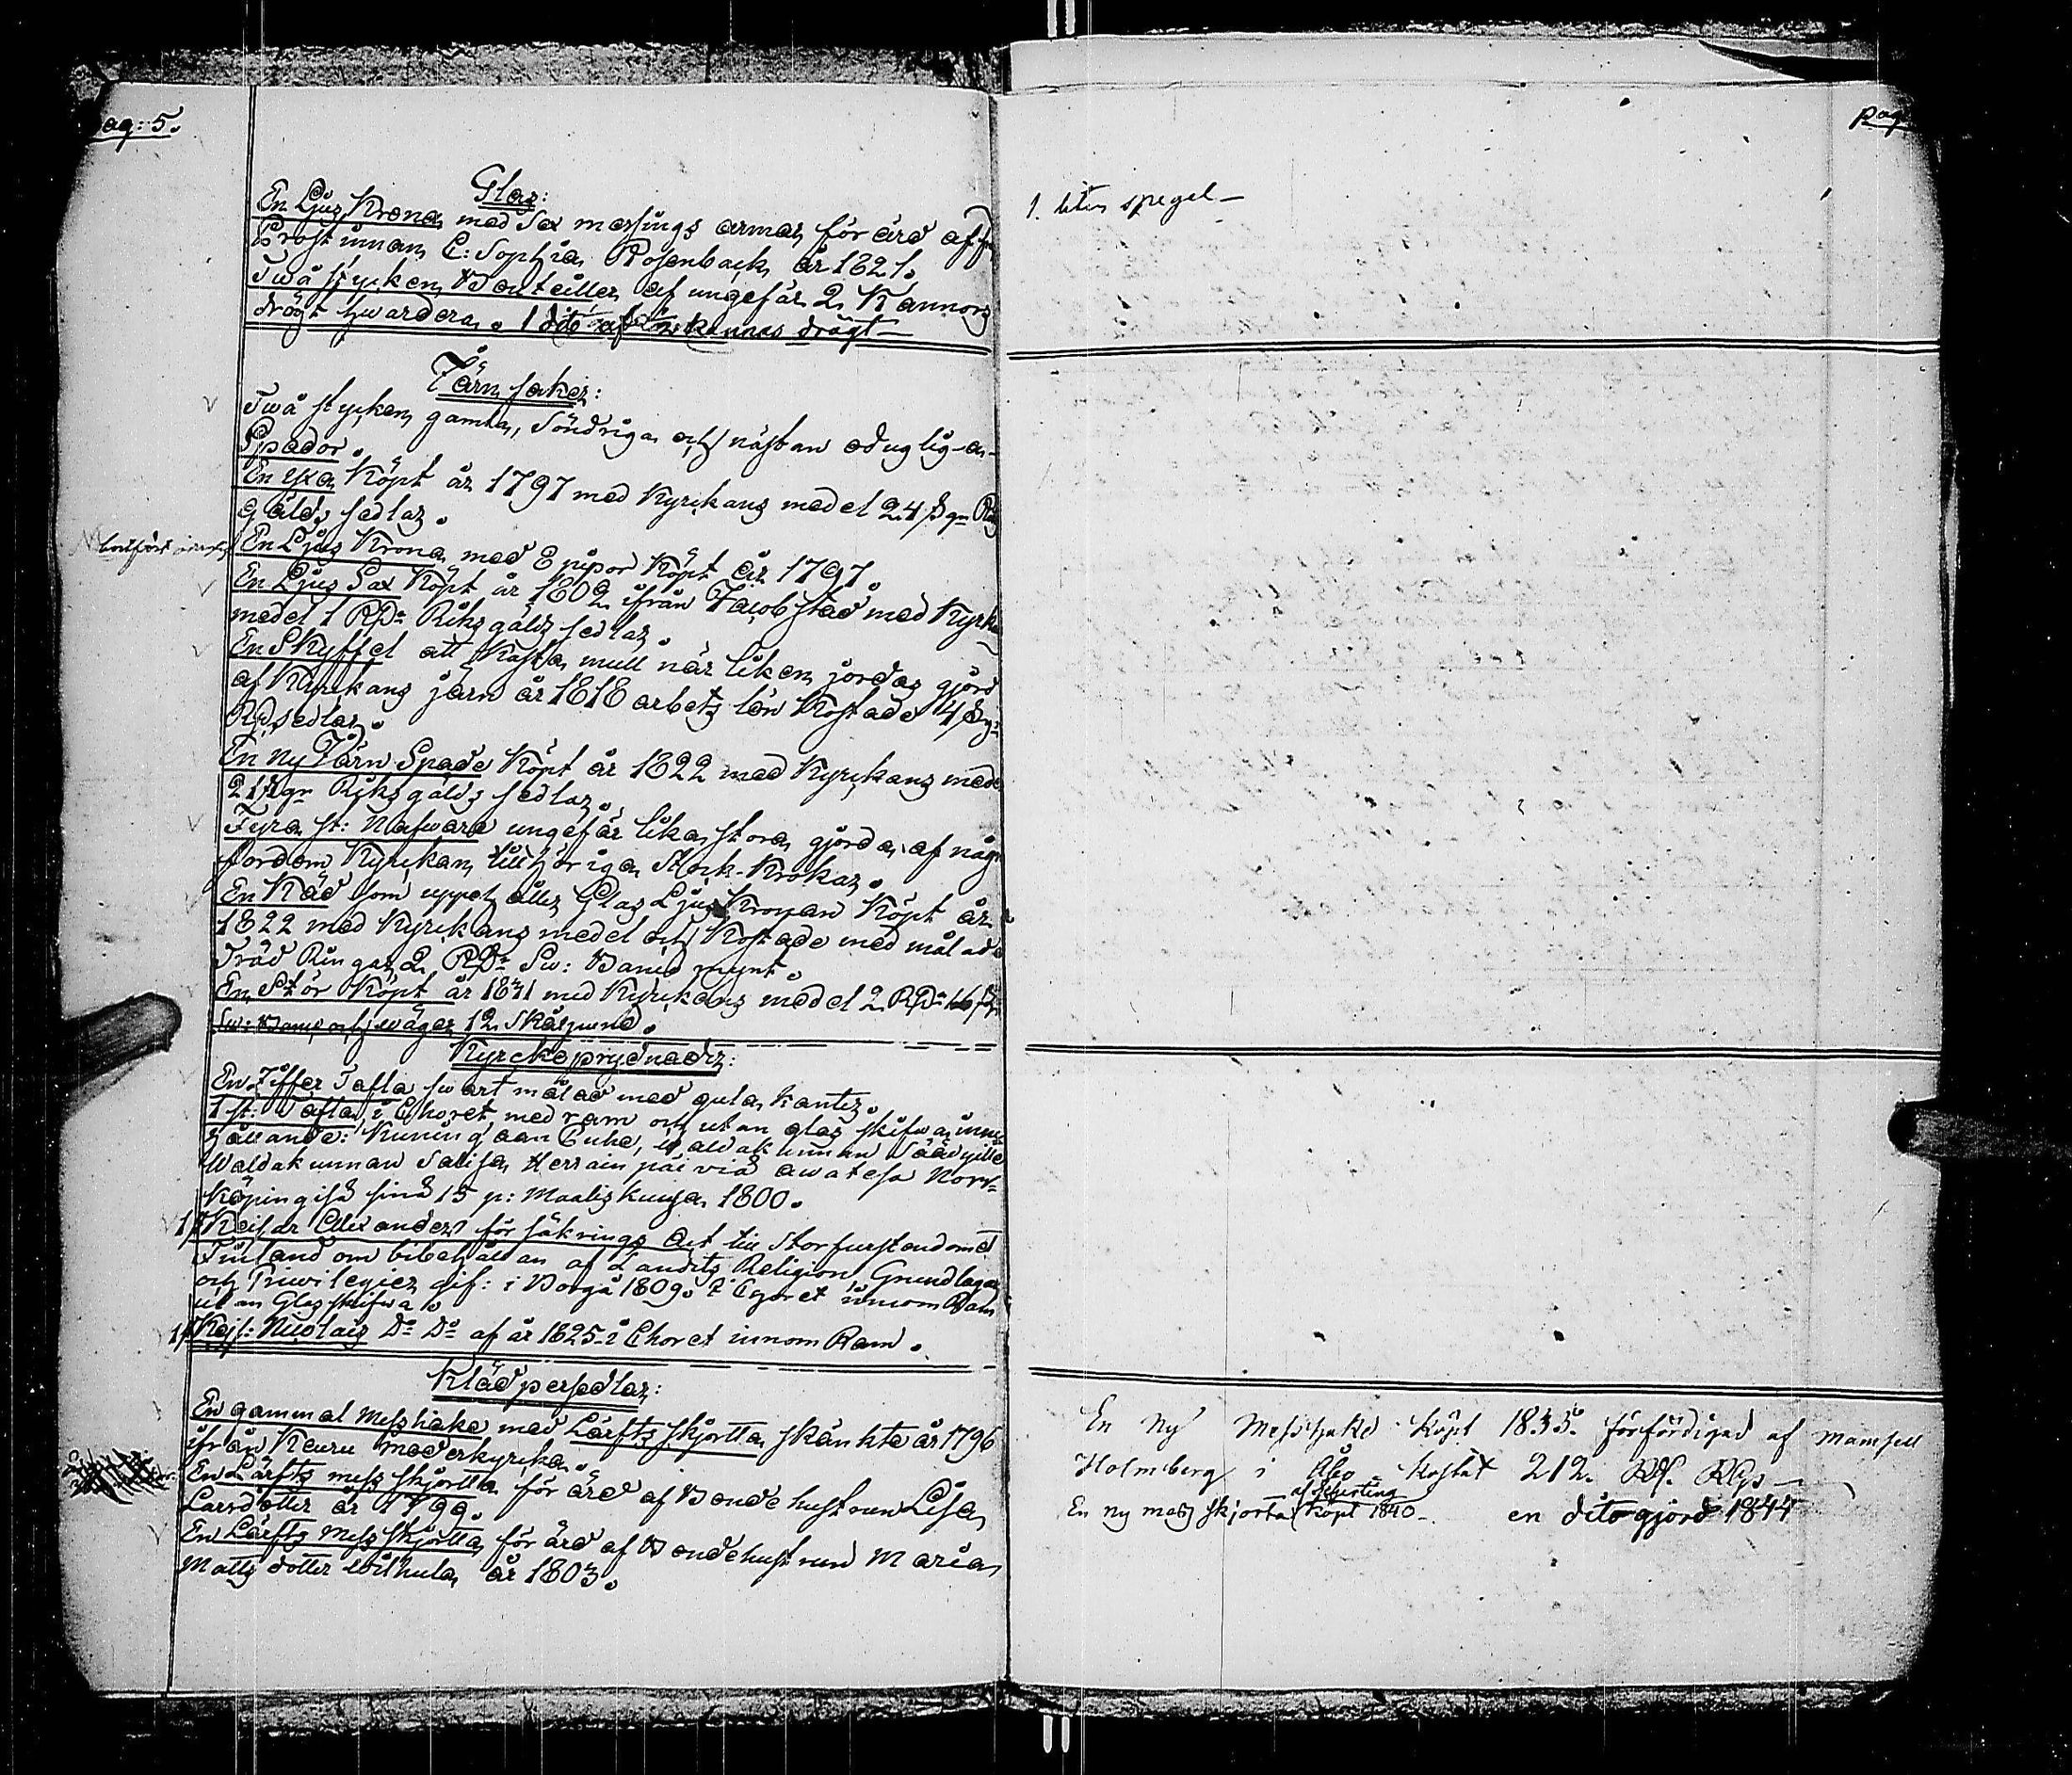 pag: 5.
Glas:
En Ljus Krona med Sex messings armar för ärd af
Prostinnan C: Sophia Rosenback år 1821.
Twå stycken Bouteiller af ungefär 2 Kannors
drägt hwardera. 1 dito af kannas drägt
Järn saker:
Twå stycken gamla, Söndriga och nästan oduglig-a
Spador.
En Yxa Köpt år 1797 med Kyrckans medel 24 ß gn
gälds sedlar.
bortförd
En Ljus Krona med 8 pipor Köpt år 1797.
En Ljus Sax Köpt år 1802 ifrån Jacobstad med Kyrk
medel 1 RDr Riks gäldz sedlar.
En Skyffel att Kasta mull när liken jordas gjord
af Kyrckans järn år 1818 arbetz lön Kostade 4
Rd sedlar.
En ny Järn Spade Köpt år 1822 med Kyrckans mede
21 ß gn Riks gälds sedlar.
Fyra st: Nafware ungefär lika stora gjorda af någr
fordom Kyrckan tillhöriga Stock-Krokar.
En Käd som uppehåller Glas Ljus Kronan Köpt år
1822 med Kyrckans medel och Kostade med målade
Träd Ringar 2 RDr Sw: Banco mynt.
En Stör Köpt år 1831 med Kyrckans medel 2 RDr 16
Sw: Banco och wäger 12 Skålpund.
Kyrckoprydnader:
En Ziffer Tafla swart målad med gula kanter.
1 st: Tafla i Choret med ram och utan glas skifwa inne
hållande: Kuningaan Puhe, Waldakunnan Säädyille
Waldakunnan Salisa Herrain päiviä awatesa Norr-
köpingisä sinä 15 p: Maaliskuusa 1800.
1 st Keisar Alexanders försäkrings Act till Storfurstendomet
Finland om bibehållan af Landets Religion, Grundlagar
och Priwilegier gif: i Borgå 1809. i Choret innom Ram
utan Glas skifwa.
1 st Kejs: Nicolais Do Do af år 1825 i Choret innom Ram.
Klädpersedlar:
En gammal Messhake med Lärfts skjorta skänkte år 1796
ifrån Keuru moderkyrka.
En Lärfts mess skjorta för ärd af Bonde hustrun Lisa
Larsdotter år 1799.
En Lärfts Mess skjorta för ärd af Bondehustrun Maria
Matts dotter år 1803.
pag
1. liten spegel
En Ny Messhake köpt 1835. förfärdigad af Mamsell
Holmberg i Åbo kostat 212. Rd. RGs
af Schirting
En ny mess skjorta köpt 1840. en dito gjord 1844